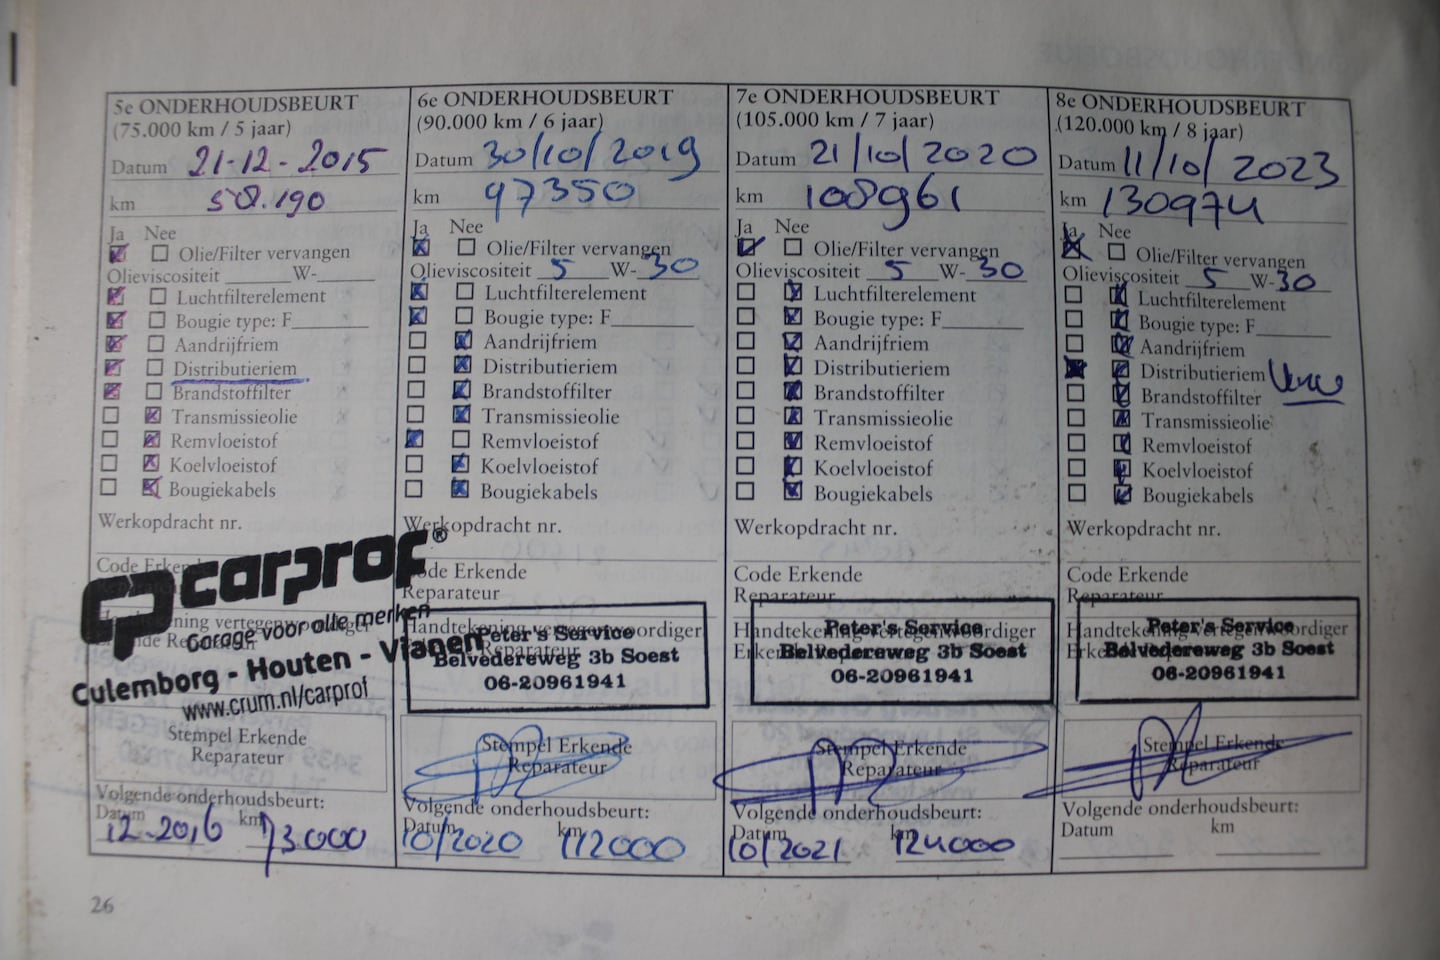 5e ONDERHOUDSBEURT
(75.000 km / 5 jaar)
Datum 21-12-2015
km 58.190
Ja Nee
Olie/Filter vervangen
Olieviscositeit W-
Luchtfilterelement
Bougie type: F
Aandrijfriem
Distributieriem
Brandstoffilter
Transmissieolie
Remvloeistof
Koelvloeistof
Bougiekabels
Werkopdracht nr.
Code Erkende
carprof®
Garage voor alle merken
Culemborg - Houten - Vianen
www.crum.nl/carprof
Stempel Erkende
Reparateur
Volgende onderhoudsbeurt:
Datum km
12-2016 73.000
6e ONDERHOUDSBEURT
(90.000 km / 6 jaar)
Datum 30/10/2019
km 97350
Ja Nee
Olie/Filter vervangen
Olieviscositeit 5 W-30
Luchtfilterelement
Bougie type: F
Aandrijfriem
Distributieriem
Brandstoffilter
Transmissieolie
Remvloeistof
Koelvloeistof
Bougiekabels
Werkopdracht nr.
Code Erkende
Reparateur
Handtekening vertegenwoordiger
Peter's Service
Belvedereweg 3b Soest
06-20961941
Stempel Erkende
Reparateur
Volgende onderhoudsbeurt:
Datum km
10/2020 112000
7e ONDERHOUDSBEURT
(105.000 km / 7 jaar)
Datum 21/10/2020
km 108961
Ja Nee
Olie/Filter vervangen
Olieviscositeit 5 W-30
Luchtfilterelement
Bougie type: F
Aandrijfriem
Distributieriem
Brandstoffilter
Transmissieolie
Remvloeistof
Koelvloeistof
Bougiekabels
Werkopdracht nr.
Code Erkende
Reparateur
Handtekening vertegenwoordiger
Peter's Service
Belvedereweg 3b Soest
06-20961941
Stempel Erkende
Reparateur
Volgende onderhoudsbeurt:
Datum km
10/2021 124000
8e ONDERHOUDSBEURT
(120.000 km / 8 jaar)
Datum 11/10/2023
km 130974
Ja Nee
Olie/Filter vervangen
Olieviscositeit 5 W-30
Luchtfilterelement
Bougie type: F
Aandrijfriem
Distributieriem
Brandstoffilter
Transmissieolie
Remvloeistof
Koelvloeistof
Bougiekabels
Werkopdracht nr.
Code Erkende
Reparateur
Handtekening vertegenwoordiger
Peter's Service
Belvedereweg 3b Soest
06-20961941
Stempel Erkende
Reparateur
Volgende onderhoudsbeurt:
Datum km
26